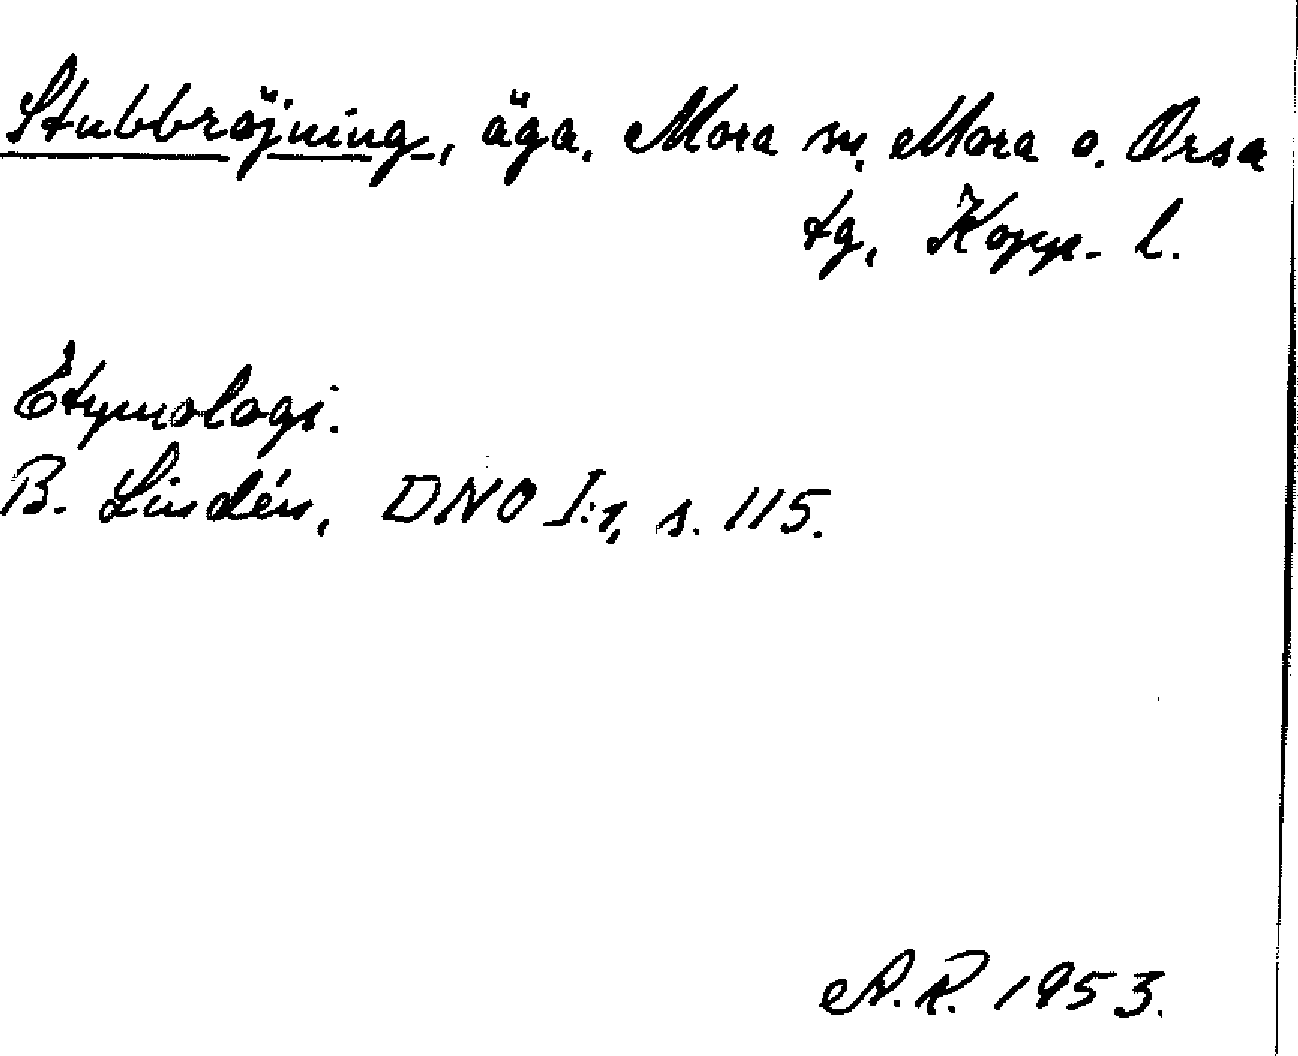 Stubbröjning, äga. Mora sn. Mora o. Orsa
tg, Kopp. l.
Etymologi.
B. Lindén, DNO I:1, s. 115.
A.R. 1953.